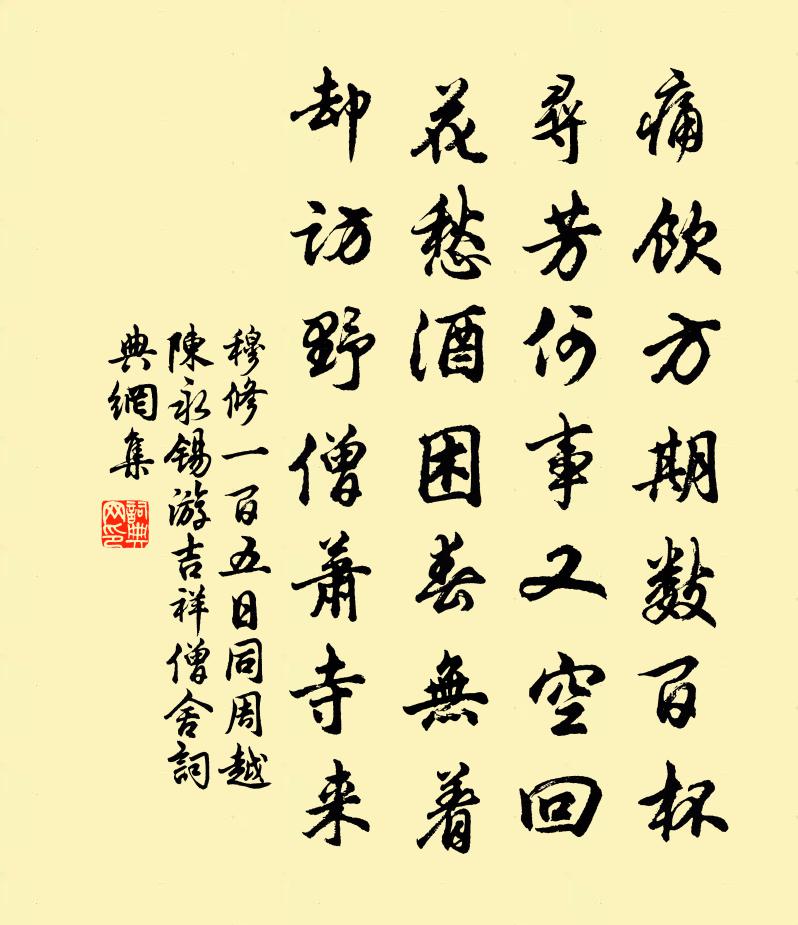 痛飲方期數百杯
尋芳何事又空回
花愁酒困春無着
却訪野僧蕭寺来
穆修一百五日同周越
陳永錫游吉祥僧舍詞
典網集
詞典网印